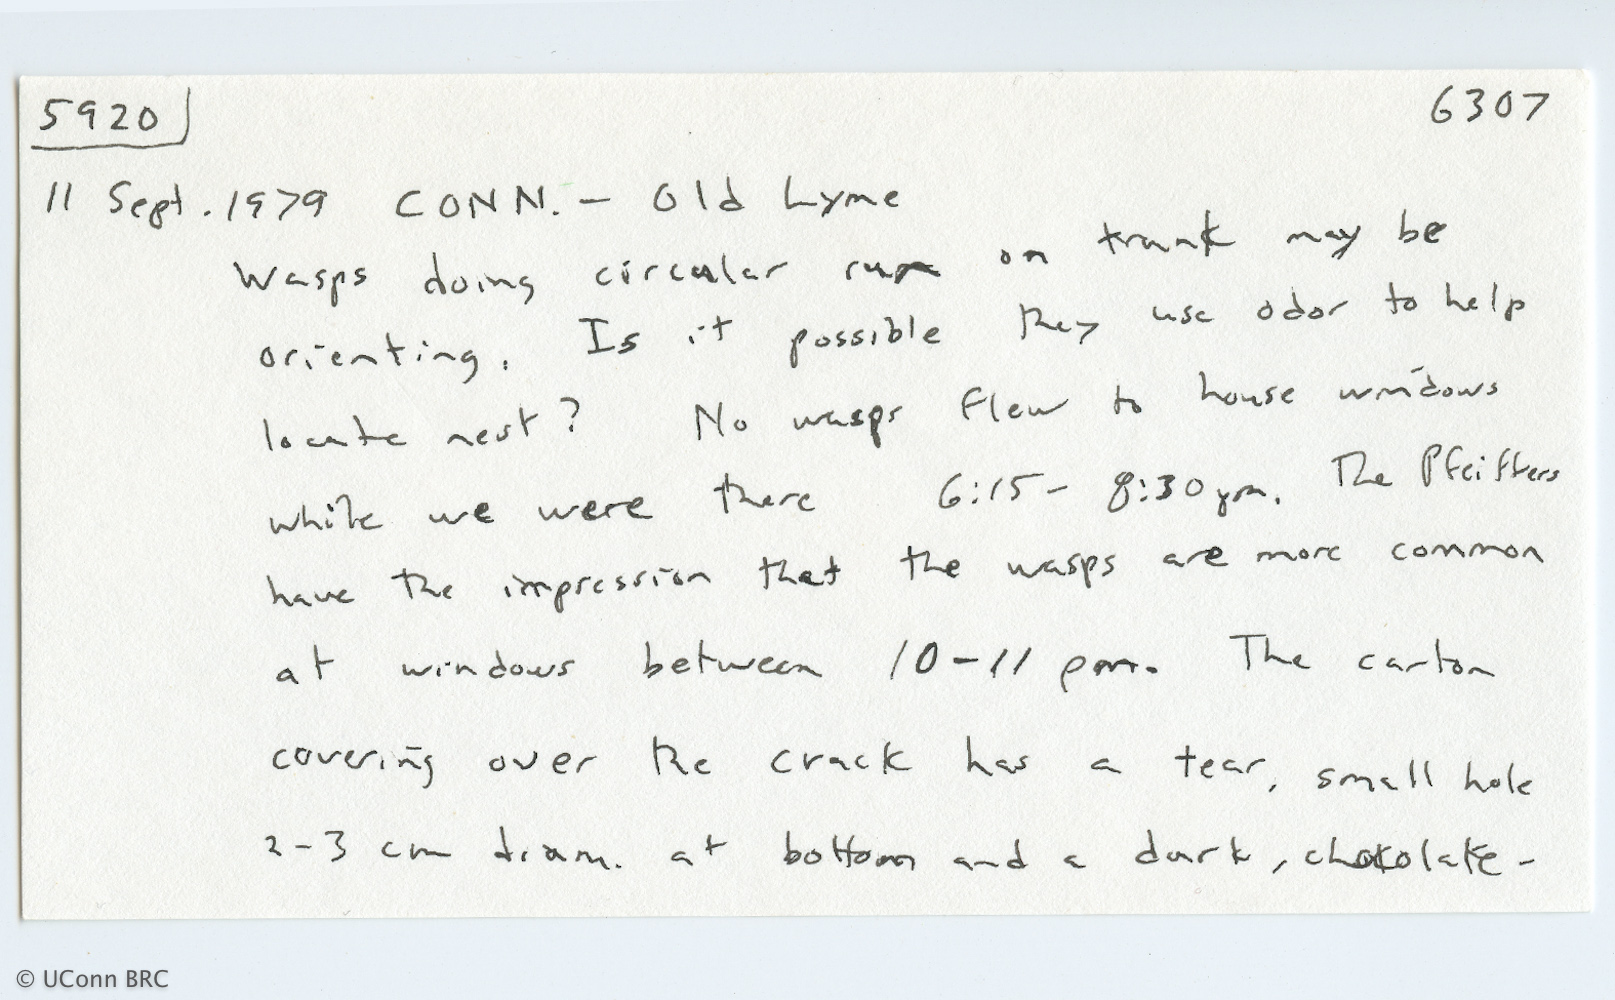 5920 6307
11 Sept. 1979 CONN. - Old Lyme
Wasps doing circular run on trunk may be
orienting. Is it possible they use odor to help
locate nest? No wasps flew to house windows
while we were there 6:15 - 8:30 pm. The Pfeiffers
have the impression that the wasps are more common
at windows between 10-11 pm. The carton
covering over the crack has a tear, small hole
2-3 cm diam. at bottom and a dark, chocolate-
© UConn BRC